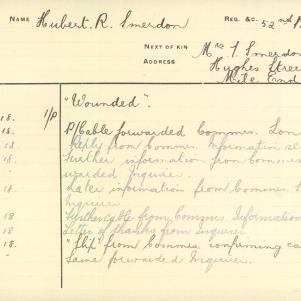 NAME Hubert R. Smerdon REG. &C. 52nd B
NEXT OF KIN Mrs S. Smerdon
ADDRESS Hughes Stree
Mile End
18. 1/P "Wounded".
18. P/Cable forwarded Commrs. Lon
Reply from Commrs. Information re
18. Further information from Commrs
warded Inquirer.
Later information from Commrs.
Inquirer
18 Further cable from Commrs. Information
18 Letter of thanks from Inquirer
18. "Slip" from Commrs. confirming ca
Same forwarded Inquirer.